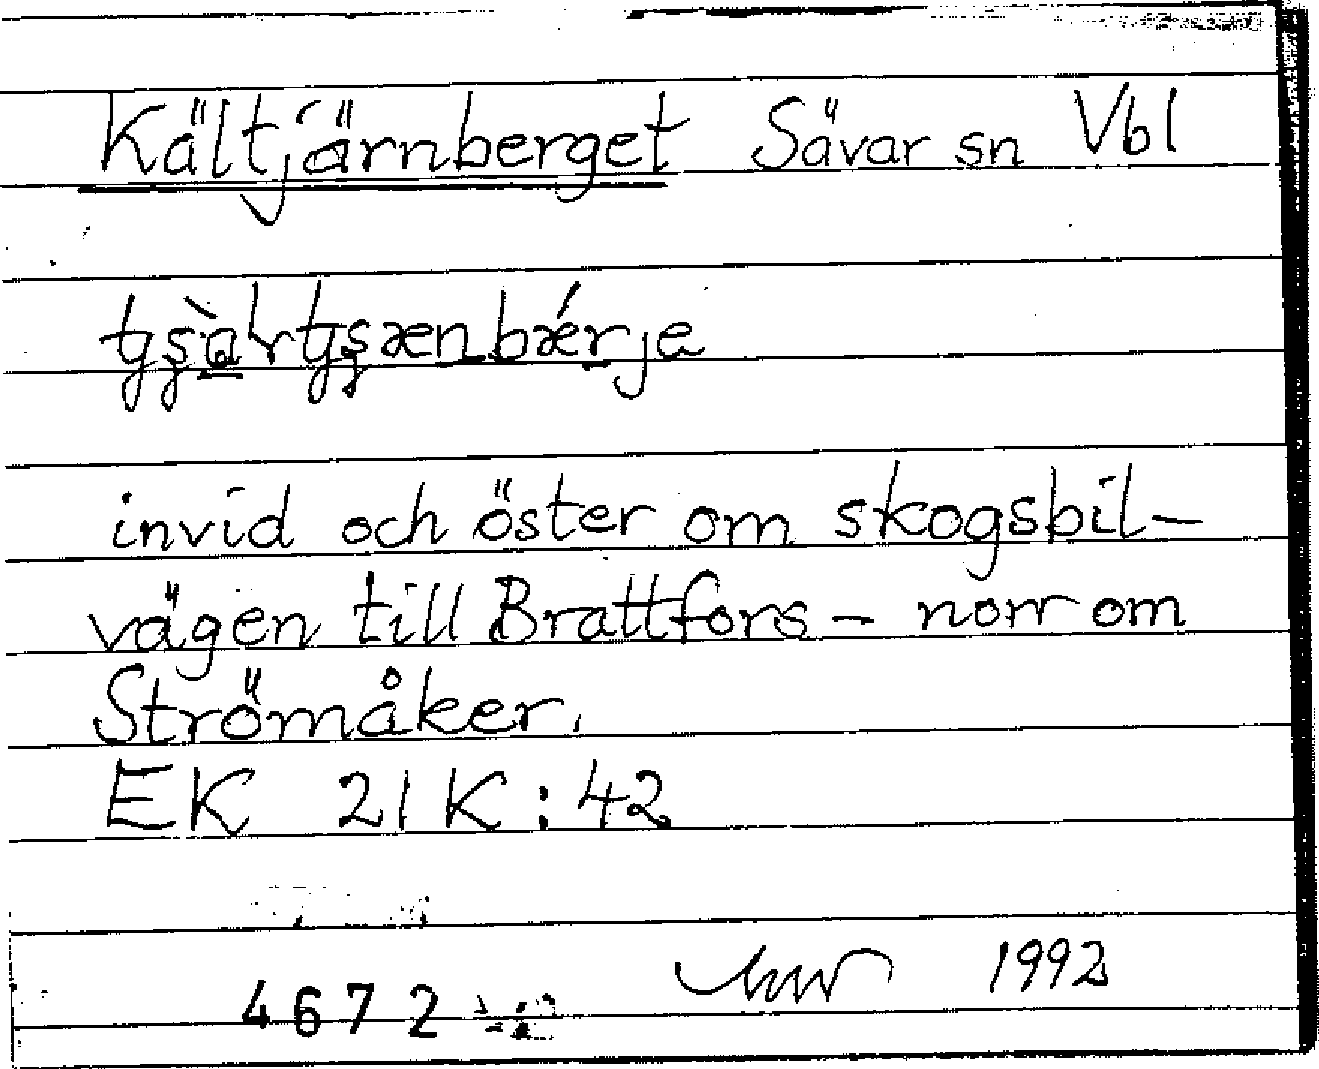 Kältjärnberget Sävar sn Vbl
invid och öster om skogsbil-
vägen till Brattfors - norr om
Strömåker.
EK 21K:42
1992
4672